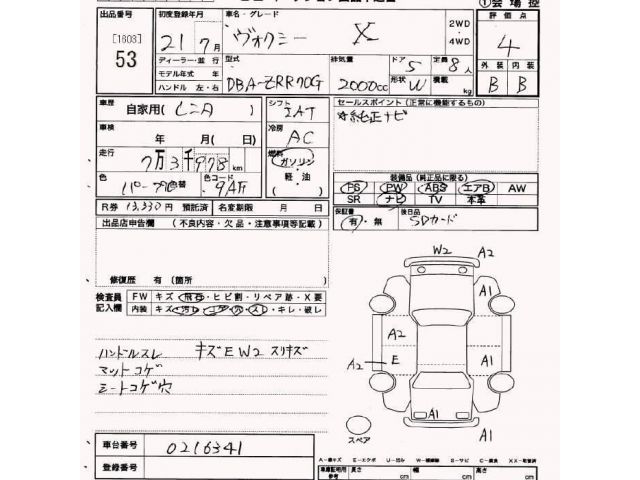 ①会場控
出品番号 初度登録年月 車名・グレード 2WD 評価点
[1603] 21年7月 ヴォクシー X ・4WD 4
53 ディーラー・並行 型式 排気量 ドア 定員 外装 内装
モデル年式 年 DBA-ZRR70G 2000cc 5 8人 B B
ハンドル 左・右 形状 W 積載 kg
車歴 自家用(レンタ) シフト IAT セールスポイント(正常に機能するもの)
車検 年 月(日) 冷房 AC *純正ナビ
走行 7万3千978km 燃料 ガソリン・軽・油
色 パープル 色替 色コード 9AH 装備品(純正品に限る)
PS PW ABS エアB AW
SR ナビ TV 本革
R券 13,330円 預託済 名変期限 月 日 保証書 有・無 後日品 SDカード
出品店申告欄 (不良内容・欠品・注意事項等記載)
修復歴 有(箇所
検査員 FW キズ・飛石・ヒビ割・リペア跡・X要
記入欄 内装 キズ・汚レ・コゲ・穴・スレ・キレ・破レ
ハンドルスレ キズEW2スリキズ
マットコゲ
シートコゲ穴
W2 A2
A1
A2
A2 E A1
A1
A1
スペア
車台番号 0216341
登録番号
A-線キズ E-エクボ U-凹み S-サビ C-腐食 XX-取替済
車庫証明用参考 長さ cm 幅 cm 高さ cm